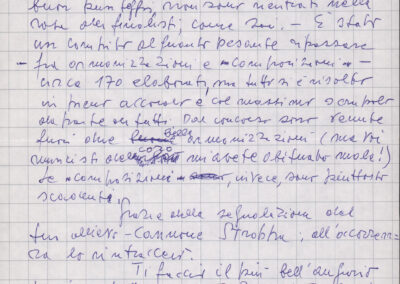 buon punteggio, non sono rientrati nella
rosa dei finalisti, come sai. – È stato
un compito alquanto pesante ripassare
– fra armonizzazioni e "composizioni" –
circa 170 elaborati, ma tutto si è risolto
in pieno accordo e col massimo scrupolo
da parte di tutti. Dal concorso sono venute
fuori due belle armonizzazioni (ma voi
mi avete abituato male!)
le "composizioni", invece, sono piuttosto
scadenti.
Grazie della segnalazione del
tuo allievo Stroppa; all'occorren-
za lo rintraccerò.
Ti faccio il più bell'augurio